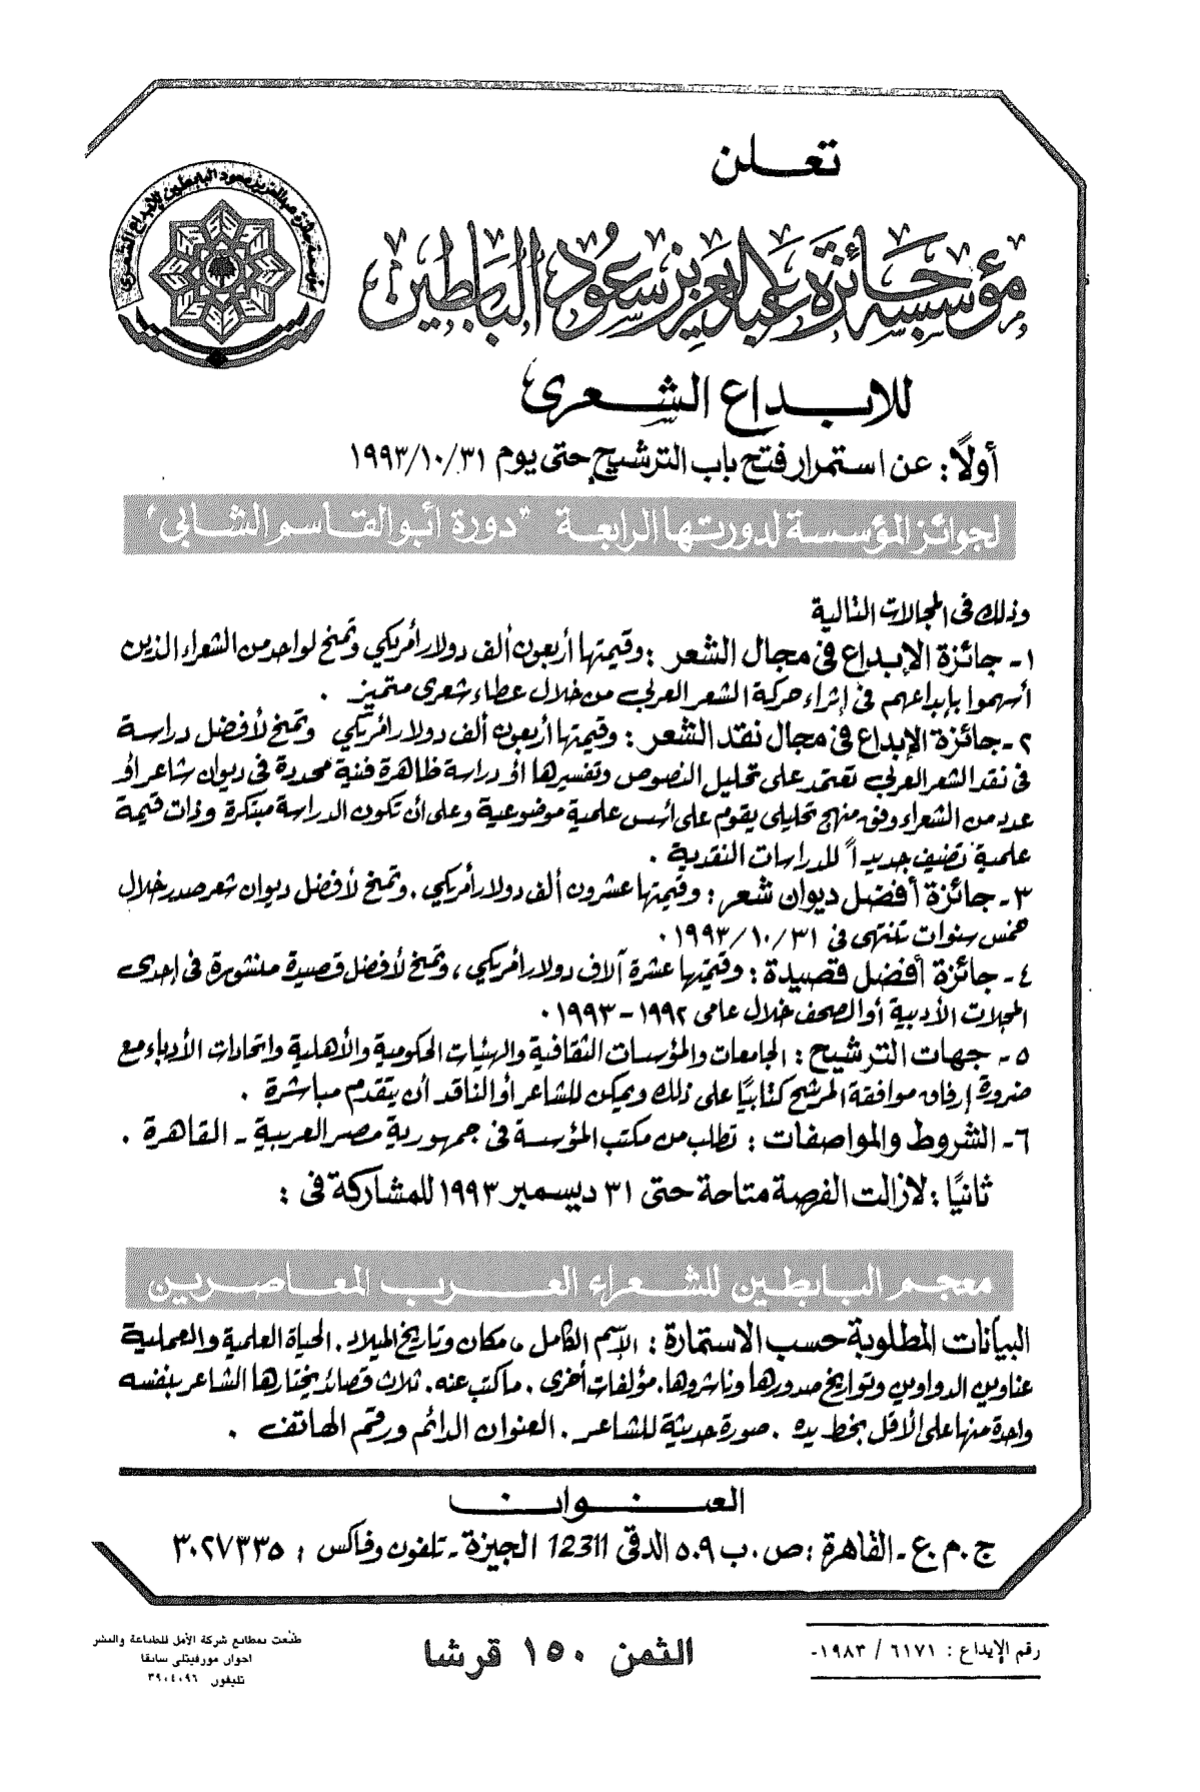 تعلن
مؤسسة جائزة عبدالعزيز سعود البابطين للإبداع الشعرى
مؤسسة جائزة عبدالعزيز سعود البابطين
للابداع الشعرى
أولاً: عن استمرار فتح باب الترشيح حتى يوم ١٩٩٣/١٠/٣١
لجوائز المؤسسة لدورتها الرابعة "دورة أبو القاسم الشابى"
وذلك فى المجالات التالية
١- جائزة الإبداع فى مجال الشعر : وقيمتها أربعون ألف دولار أمريكي وتمنح لواحد من الشعراء الذين
أسهموا بإبداعهم فى إثراء حركة الشعر العربى من خلال عطاء شعرى متميز .
٢- جائزة الإبداع فى مجال نقد الشعر : وقيمتها أربعون ألف دولار أمريكي وتمنح لأفضل دراسة
فى نقد الشعر العربى تعتمد على تحليل النصوص وتفسيرها أو دراسة ظاهرة فنية محددة فى ديوان شاعر أو
عدد من الشعراء وفق منهج تحليلى يقوم على أسس علمية موضوعية وعلى أن تكون الدراسة مبتكرة وذات قيمة
علمية تضيف جديداً للدراسات النقدية .
٣- جائزة أفضل ديوان شعر : وقيمتها عشرون ألف دولار أمريكي . وتمنح لأفضل ديوان شعر صدر خلال
خمس سنوات تنتهى فى ١٩٩٣/١٠/٣١ .
٤- جائزة أفضل قصيدة : وقيمتها عشرة آلاف دولار أمريكي ، وتمنح لأفضل قصيدة منشورة فى إحدى
المجلات الأدبية أو الصحف خلال عامى ١٩٩٢ - ١٩٩٣ .
٥- جهات الترشيح : الجامعات والمؤسسات الثقافية والهيئات الحكومية والأهلية واتحادات الأدباء مع
ضرورة إرفاق موافقة المرشح كتابيًا على ذلك ويمكن للشاعر أو الناقد أن يتقدم مباشرة .
٦- الشروط والمواصفات : تطلب من مكتب المؤسسة فى جمهورية مصر العربية - القاهرة .
ثانيًا : لازالت الفرصة متاحة حتى ٣١ ديسمبر ١٩٩٣ للمشاركة فى :
معجم البابطين للشعراء العرب المعاصرين
البيانات المطلوبة حسب الاستمارة : الإسم الكامل ، مكان وتاريخ الميلاد . الحياة العلمية والعملية
عناوين الدواوين وتواريخ صدورها وناشروها . مؤلفات أخرى . ما كتب عنه . ثلاث قصائد يختارها الشاعر بنفسه
واحدة منها على الأقل بخط يده . صورة حديثة للشاعر . العنوان الدائم ورقم الهاتف .
العنوان
ج . م . ع - القاهرة : ص . ب ٥٠٩ الدقى 12311 الجيزة - تلفون وفاكس : ٣٠٢٧٣٣٥
رقم الإيداع : ٦١٧١ / ١٩٨٣-
الثمن ١٥٠ قرشا
طبعت بمطابع شركة الأمل للطباعة والنشر
اخوان مورفيتلى سابقا
تليفون ٣٩٠٤٠٩٦